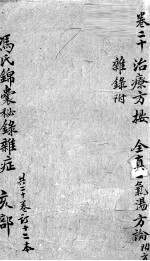 卷二十 治療方按 全真一氣湯方論附方
雜錄附
共二十卷訂十二本
馮氏錦囊秘錄雜症 亥部